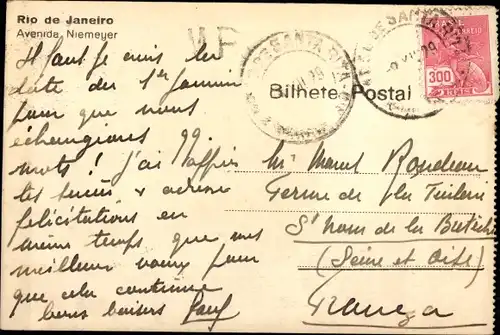 Rio de Janeiro
Avenida Niemeyer
Bilhete Postal
300
Il faut je crois les
date du 1er Janvier
pour que nous
échangions qq.
mots! J'ai appris
tes succès & adresse
félicitations en
même temps que mes
meilleurs voeux pour
que cela continue
bons baisers
Mr Marcel Rondeau
Ferme de la Tuilerie
St Nom de la Bretèche
(Seine et Oise)
França